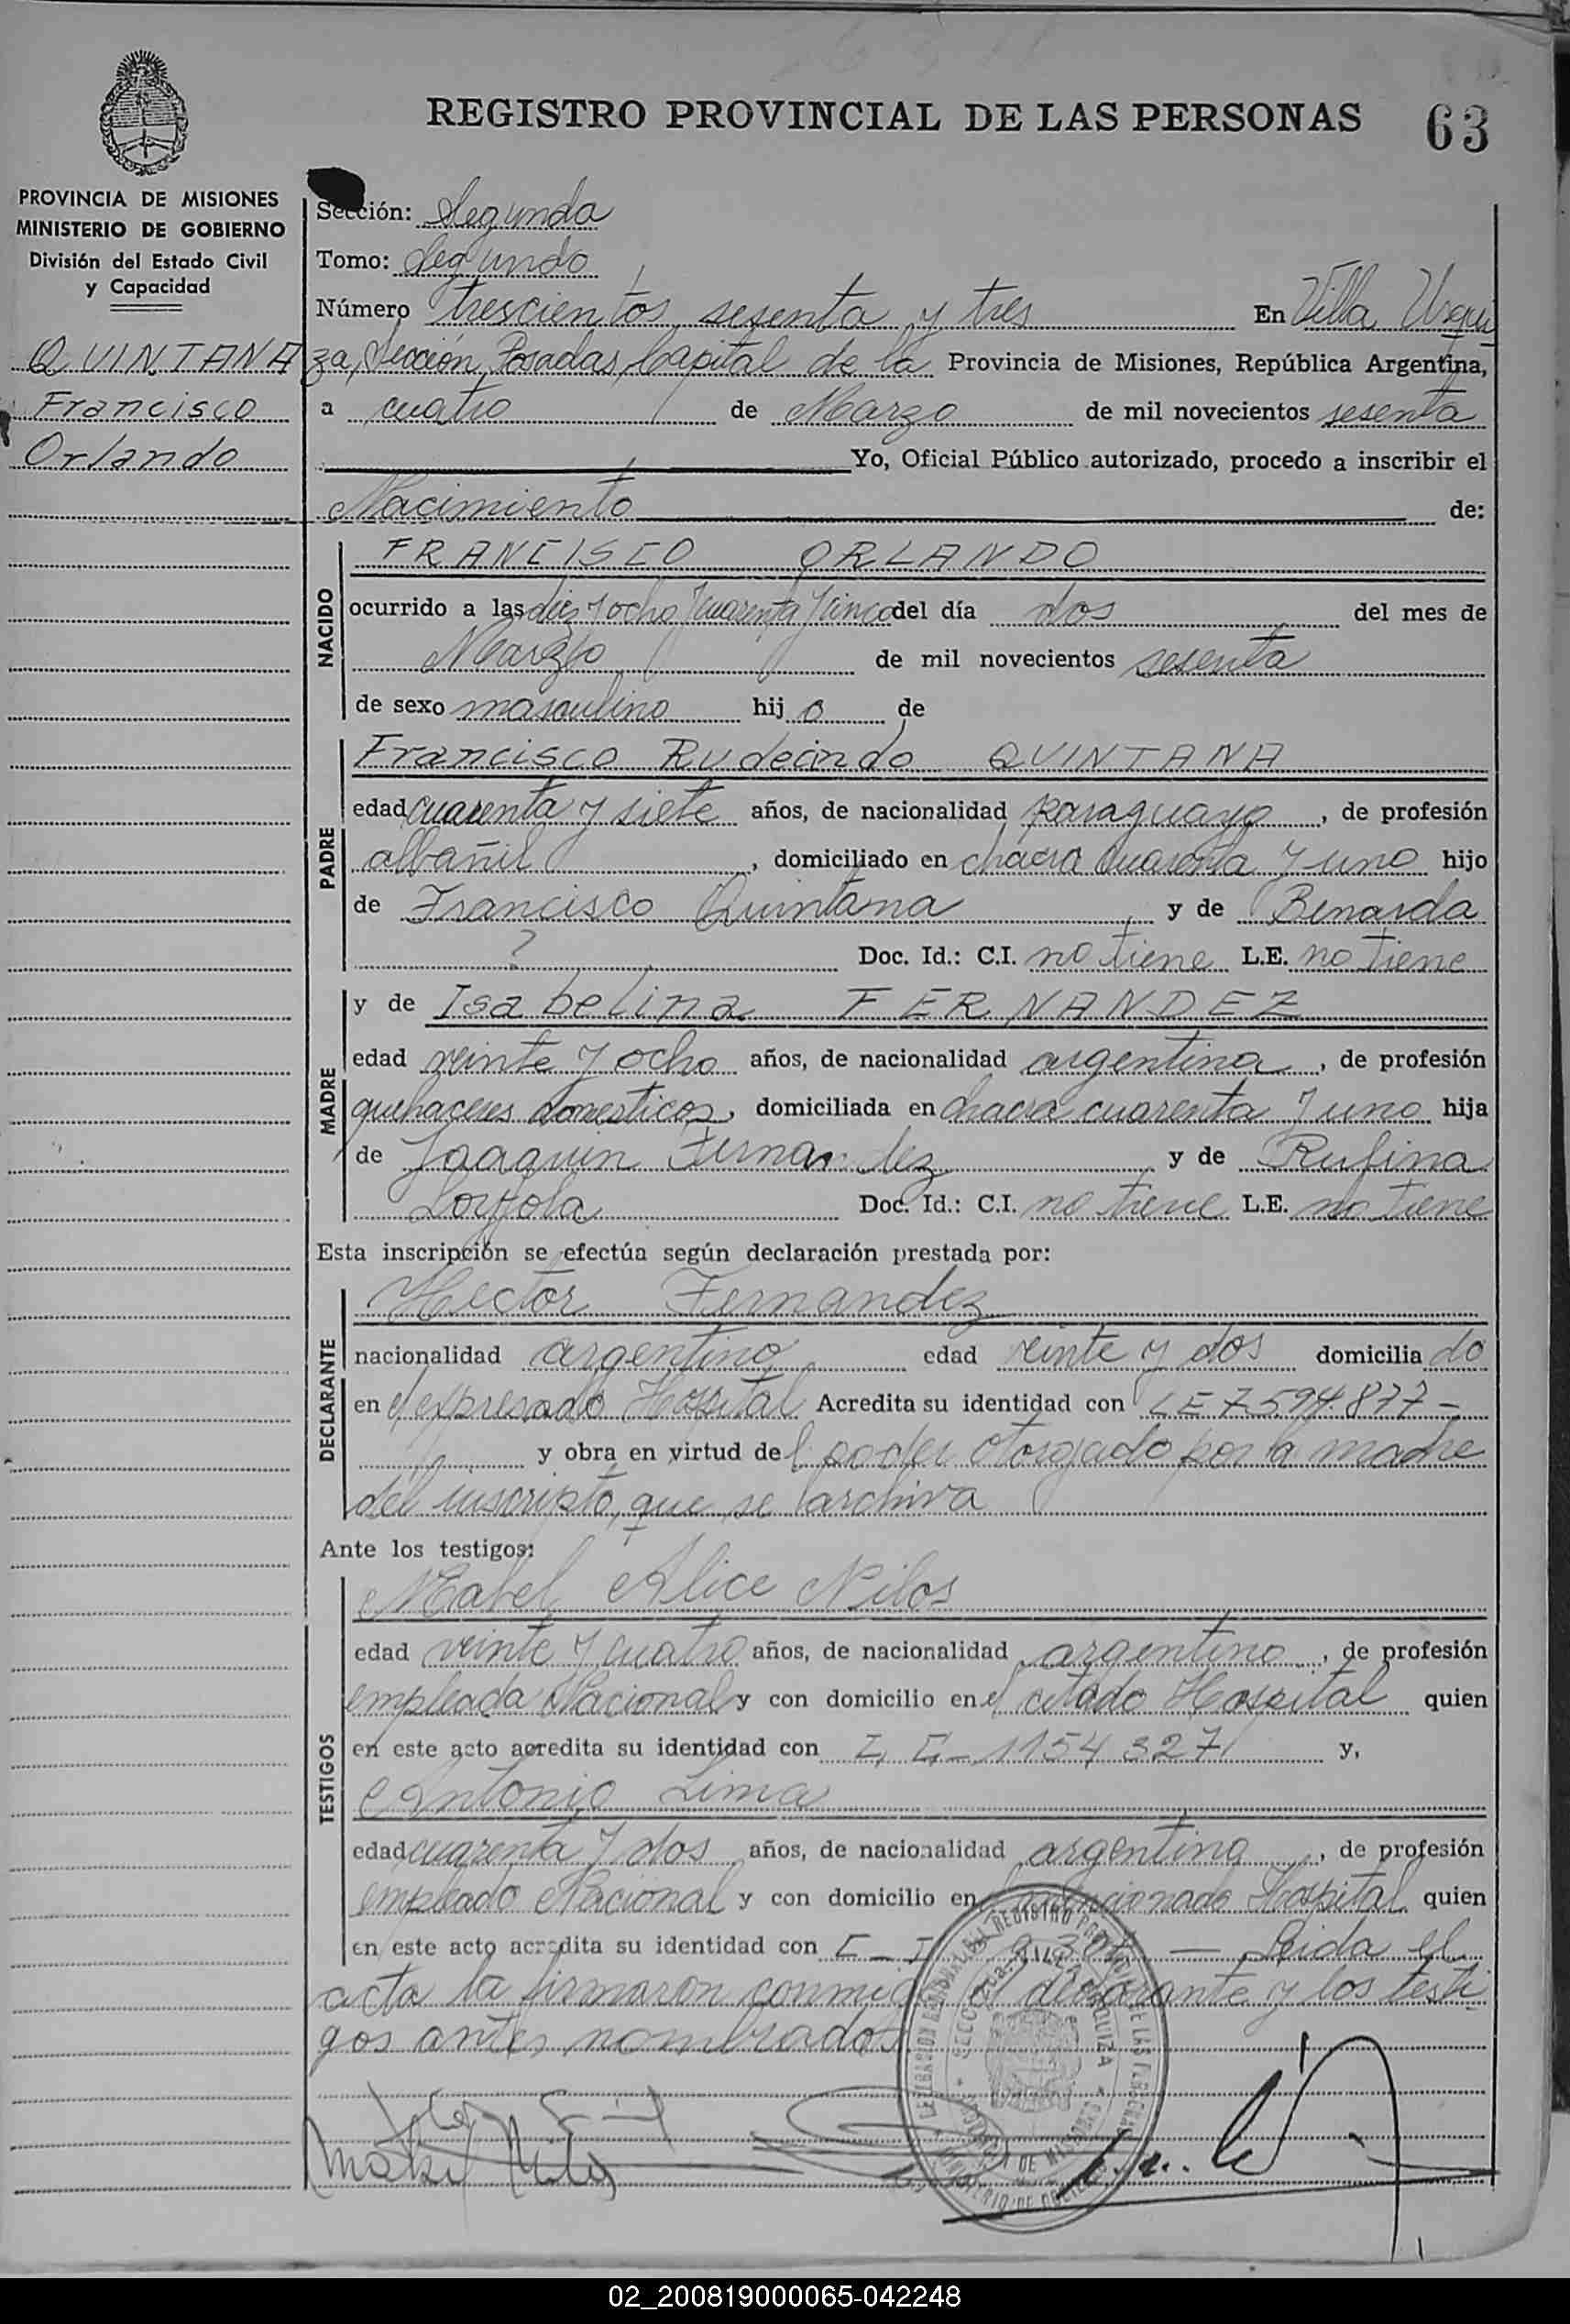 REGISTRO PROVINCIAL DE LAS PERSONAS 63
PROVINCIA DE MISIONES
MINISTERIO DE GOBIERNO
División del Estado Civil
y Capacidad
QUINTANA
Francisco
Orlando
Sección: Segunda
Tomo: Segundo
Número trescientos sesenta y tres En Villa Urqui
za, Sección Posadas, Capital de la Provincia de Misiones, República Argentina,
a cuatro de Marzo de mil novecientos sesenta
Yo, Oficial Público autorizado, procedo a inscribir el
Nacimiento de:
NACIDO
FRANCISCO ORLANDO
ocurrido a las diez y ocho y cuarenta y cinco del día dos del mes de
Marzo de mil novecientos sesenta
de sexo masculino hij o de
PADRE
Francisco Rudecindo QUINTANA
edad cuarenta y siete años, de nacionalidad paraguayo, de profesión
albañil, domiciliado en chacra cuarenta y uno hijo
de Francisco Quintana y de Benarda
? Doc. Id.: C.I. no tiene L.E. no tiene
MADRE
y de Isabelina FERNANDEZ
edad veinte y ocho años, de nacionalidad argentina, de profesión
quehaceres domesticos, domiciliada en chacra cuarenta y uno hija
de Joaquin Fernandez y de Rufina
Loyola Doc. Id.: C.I. no tiene L.E. no tiene
Esta inscripción se efectúa según declaración prestada por:
DECLARANTE
Hector Fernandez
nacionalidad argentino edad veinte y dos domicilia do
en el expresado Hospital Acredita su identidad con LE 7.594.877-
y obra en virtud de l poder otorgado por la madre
del inscripto, que se archiva
Ante los testigos:
TESTIGOS
Mabel Alice Nilos
edad veinte y cuatro años, de nacionalidad argentino, de profesión
empleada Nacional y con domicilio en el citado Hospital quien
en este acto acredita su identidad con 1154327 y,
Antonio Lima
edad cuarenta y dos años, de nacionalidad argentino, de profesión
empleado Nacional y con domicilio en mencionado Hospital quien
en este acto acredita su identidad con — Leida el
acta la firmaron conmigo el declarante y los testi
gos antes nombrados.
02_200819000065-042248